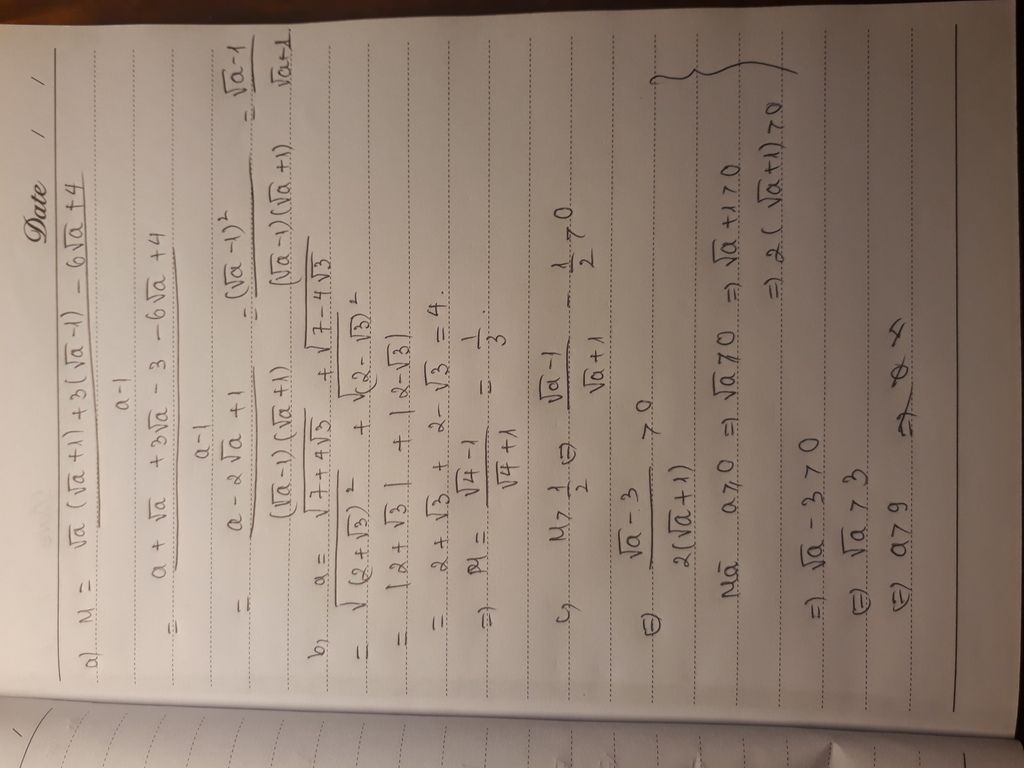 Date / /
a) M = √a (√a + 1) + 3(√a - 1) - 6√a + 4
a - 1
= a + √a + 3√a - 3 - 6√a + 4
a - 1
= a - 2√a + 1 = (√a - 1)² = √a - 1
(√a - 1)(√a + 1) (√a - 1)(√a + 1) √a + 1
b, a = √7 + 4√3 + √7 - 4√3
= √(2 + √3)² + √(2 - √3)²
= |2 + √3| + |2 - √3|
= 2 + √3 + 2 - √3 = 4.
=> M = √4 - 1 = 1
√4 + 1 3.
c, M > 1/2 <=> √a - 1 - 1/2 > 0
√a + 1
<=> √a - 3 > 0
2(√a + 1)
Mã a > 0 => √a > 0 => √a + 1 > 0
=> 2(√a + 1) > 0
=> √a - 3 > 0
<=> √a > 3
<=> a > 9